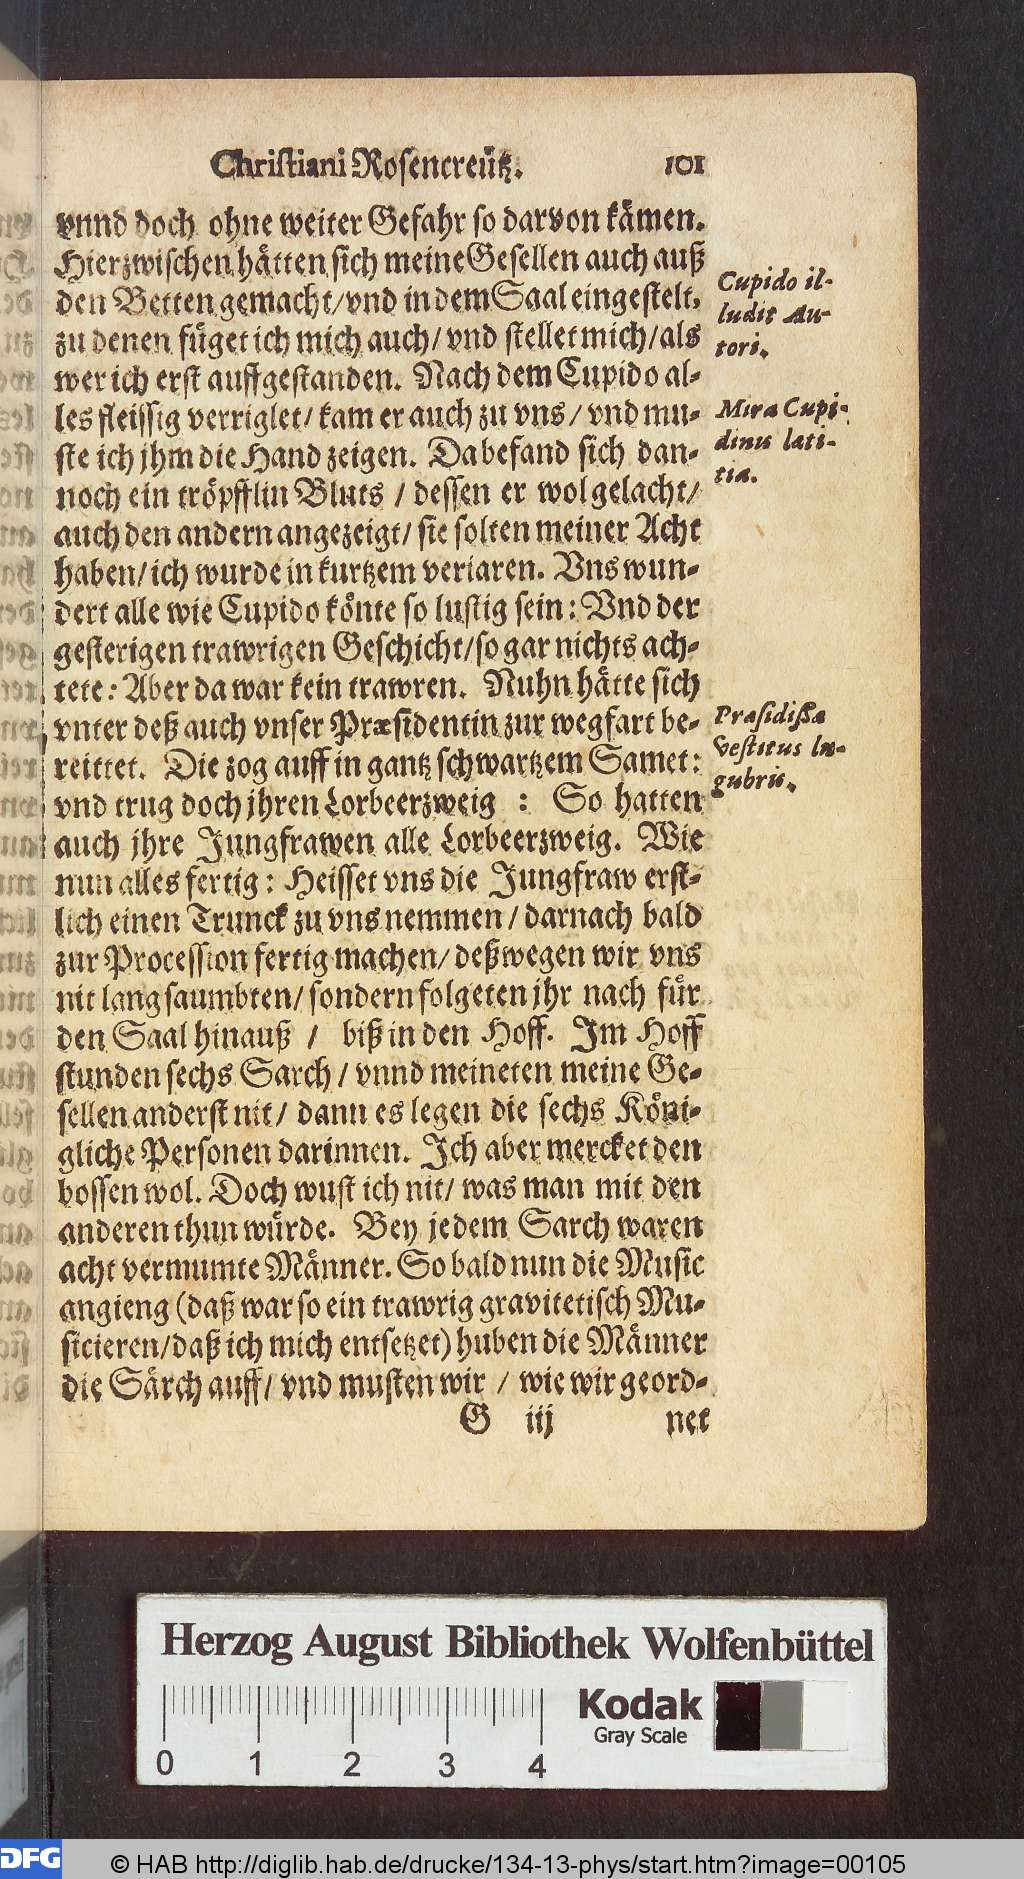 Christiani Rosencreütz. 101
vnnd doch ohne weiter Gefahr so darvon kämen.
Hierzwischen hätten sich meine Gesellen auch auß
den Betten gemacht/vnd in dem Saal eingestelt.
zu denen füget ich mich auch/ vnd stellet mich/als
wer ich erst auffgestanden. Nach dem Cupido al-
les fleissig verriglet/ kam er auch zu vns/ vnd mu-
ste ich jhm die Hand zeigen. Da befand sich dan-
noch ein tröpfflin Bluts / dessen er wol gelacht/
auch den andern angezeigt/ sie solten meiner Acht
haben/ ich wurde in kurtzem veriaren. Vns wun-
dert alle wie Cupido könte so lustig sein: Vnd der
gesterigen trawrigen Geschicht/so gar nichts ach-
tete: Aber da war kein trawren. Nuhn hätte sich
vnter deß auch vnser Præsidentin zur wegfart be-
reittet. Die zog auff in gantz schwartzem Samet:
vnd trug doch jhren Lorbeerzweig : So hatten
auch jhre Jungfrawen alle Lorbeerzweig. Wie
nun alles fertig: Heisset vns die Jungfraw erst-
lich einen Trunck zu vns nemmen / darnach bald
zur Procession fertig machen/ deßwegen wir vns
nit lang saumbten/ sondern folgeten jhr nach für
den Saal hinauß / biß in den Hoff. Im Hoff
stunden sechs Sarch / vnnd meineten meine Ge-
sellen anderst nit/ dann es legen die sechs Köni-
gliche Personen darinnen. Ich aber mercket den
bossen wol. Doch wust ich nit/ was man mit den
anderen thun würde. Bey jedem Sarch waren
acht vermumte Männer. So bald nun die Music
angieng (daß war so ein trawrig gravitetisch Mu-
sicieren/daß ich mich entsetzet) huben die Männer
die Särch auff/ vnd musten wir / wie wir geord-
G iij net
Cupido il-
ludit Au-
tori.
Mira Cupi-
dinis læti-
tia.
Præsidissæ
Vestitus lu-
gubris.
Herzog August Bibliothek Wolfenbüttel
Kodak
Gray Scale
0 1 2 3 4
DFG © HAB http://diglib.hab.de/drucke/134-13-phys/start.htm?image=00105